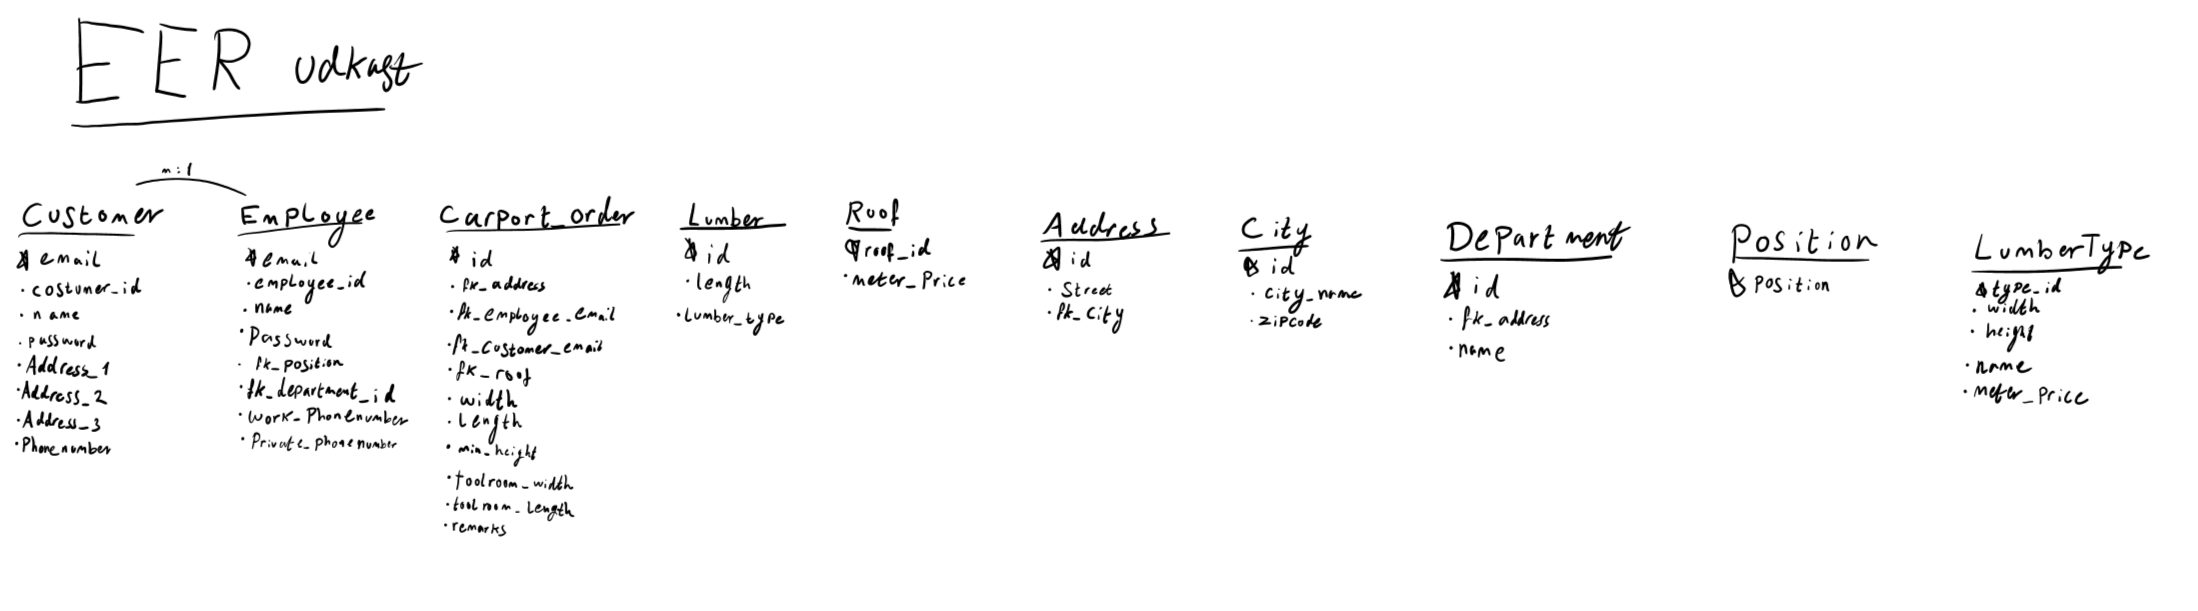 EER udkast
m:1
Customer
email
costumer_id
name
password
Address_1
Address_2
Address_3
Phonenumber
Employee
email
employee_id
name
Password
fk_position
fk_department_id
work_Phonenumber
Private_phonenumber
Carport_order
id
fk_address
fk_employee_email
fk_customer_email
fk_roof
width
Length
min_height
toolroom_width
toolroom_length
remarks
Lumber
id
length
Lumber_type
Roof
roof_id
meter_Price
Address
id
Street
fk_City
City
id
City_name
zipcode
Department
id
fk_address
name
Position
Position
LumberType
type_id
width
height
name
meter_Price